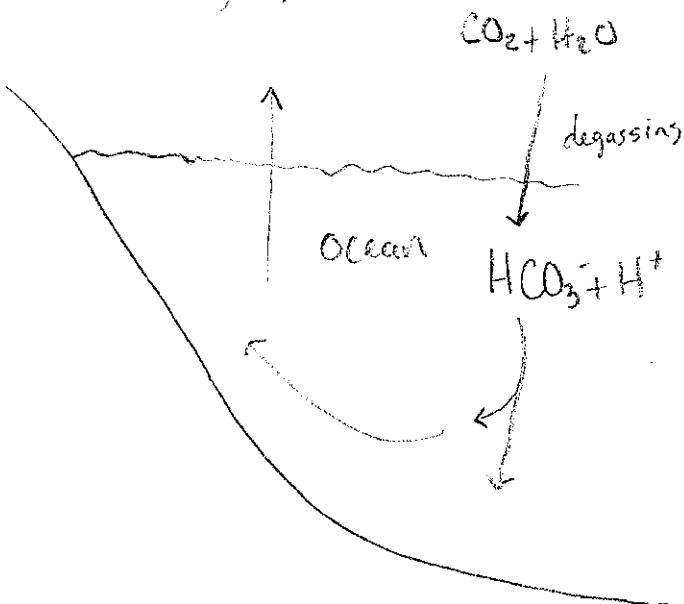 CO₂ + H₂O
degassing
Ocean
HCO₃⁻ + H⁺